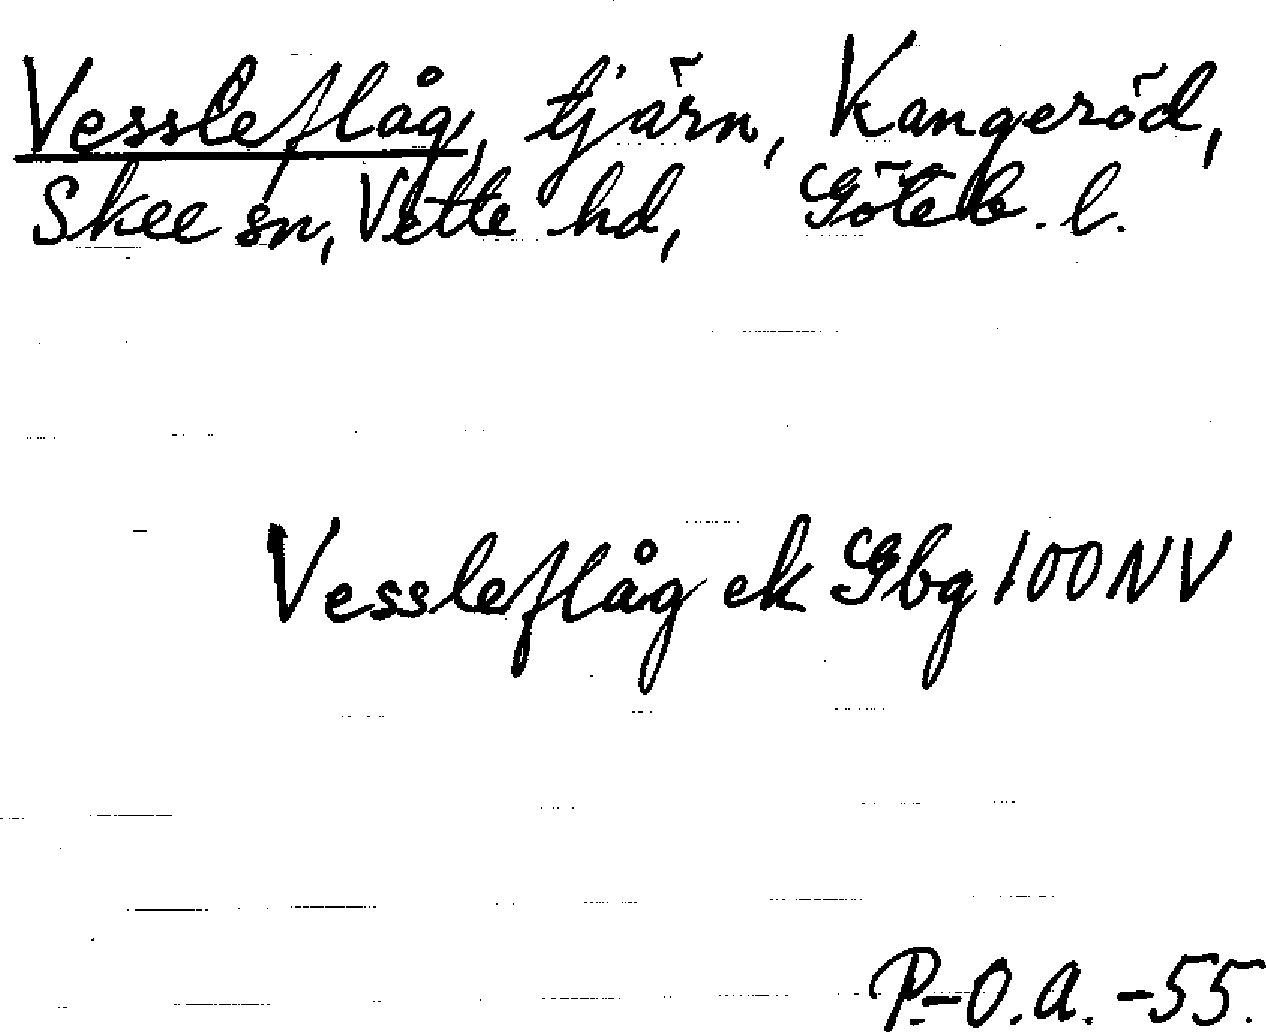 Vessleflåg, tjärn, Kangeröd,
Skee sn, Vette hd, Göteb. l.
Vessleflåg ek Gbg 100 NV
P.-O. A. -55.